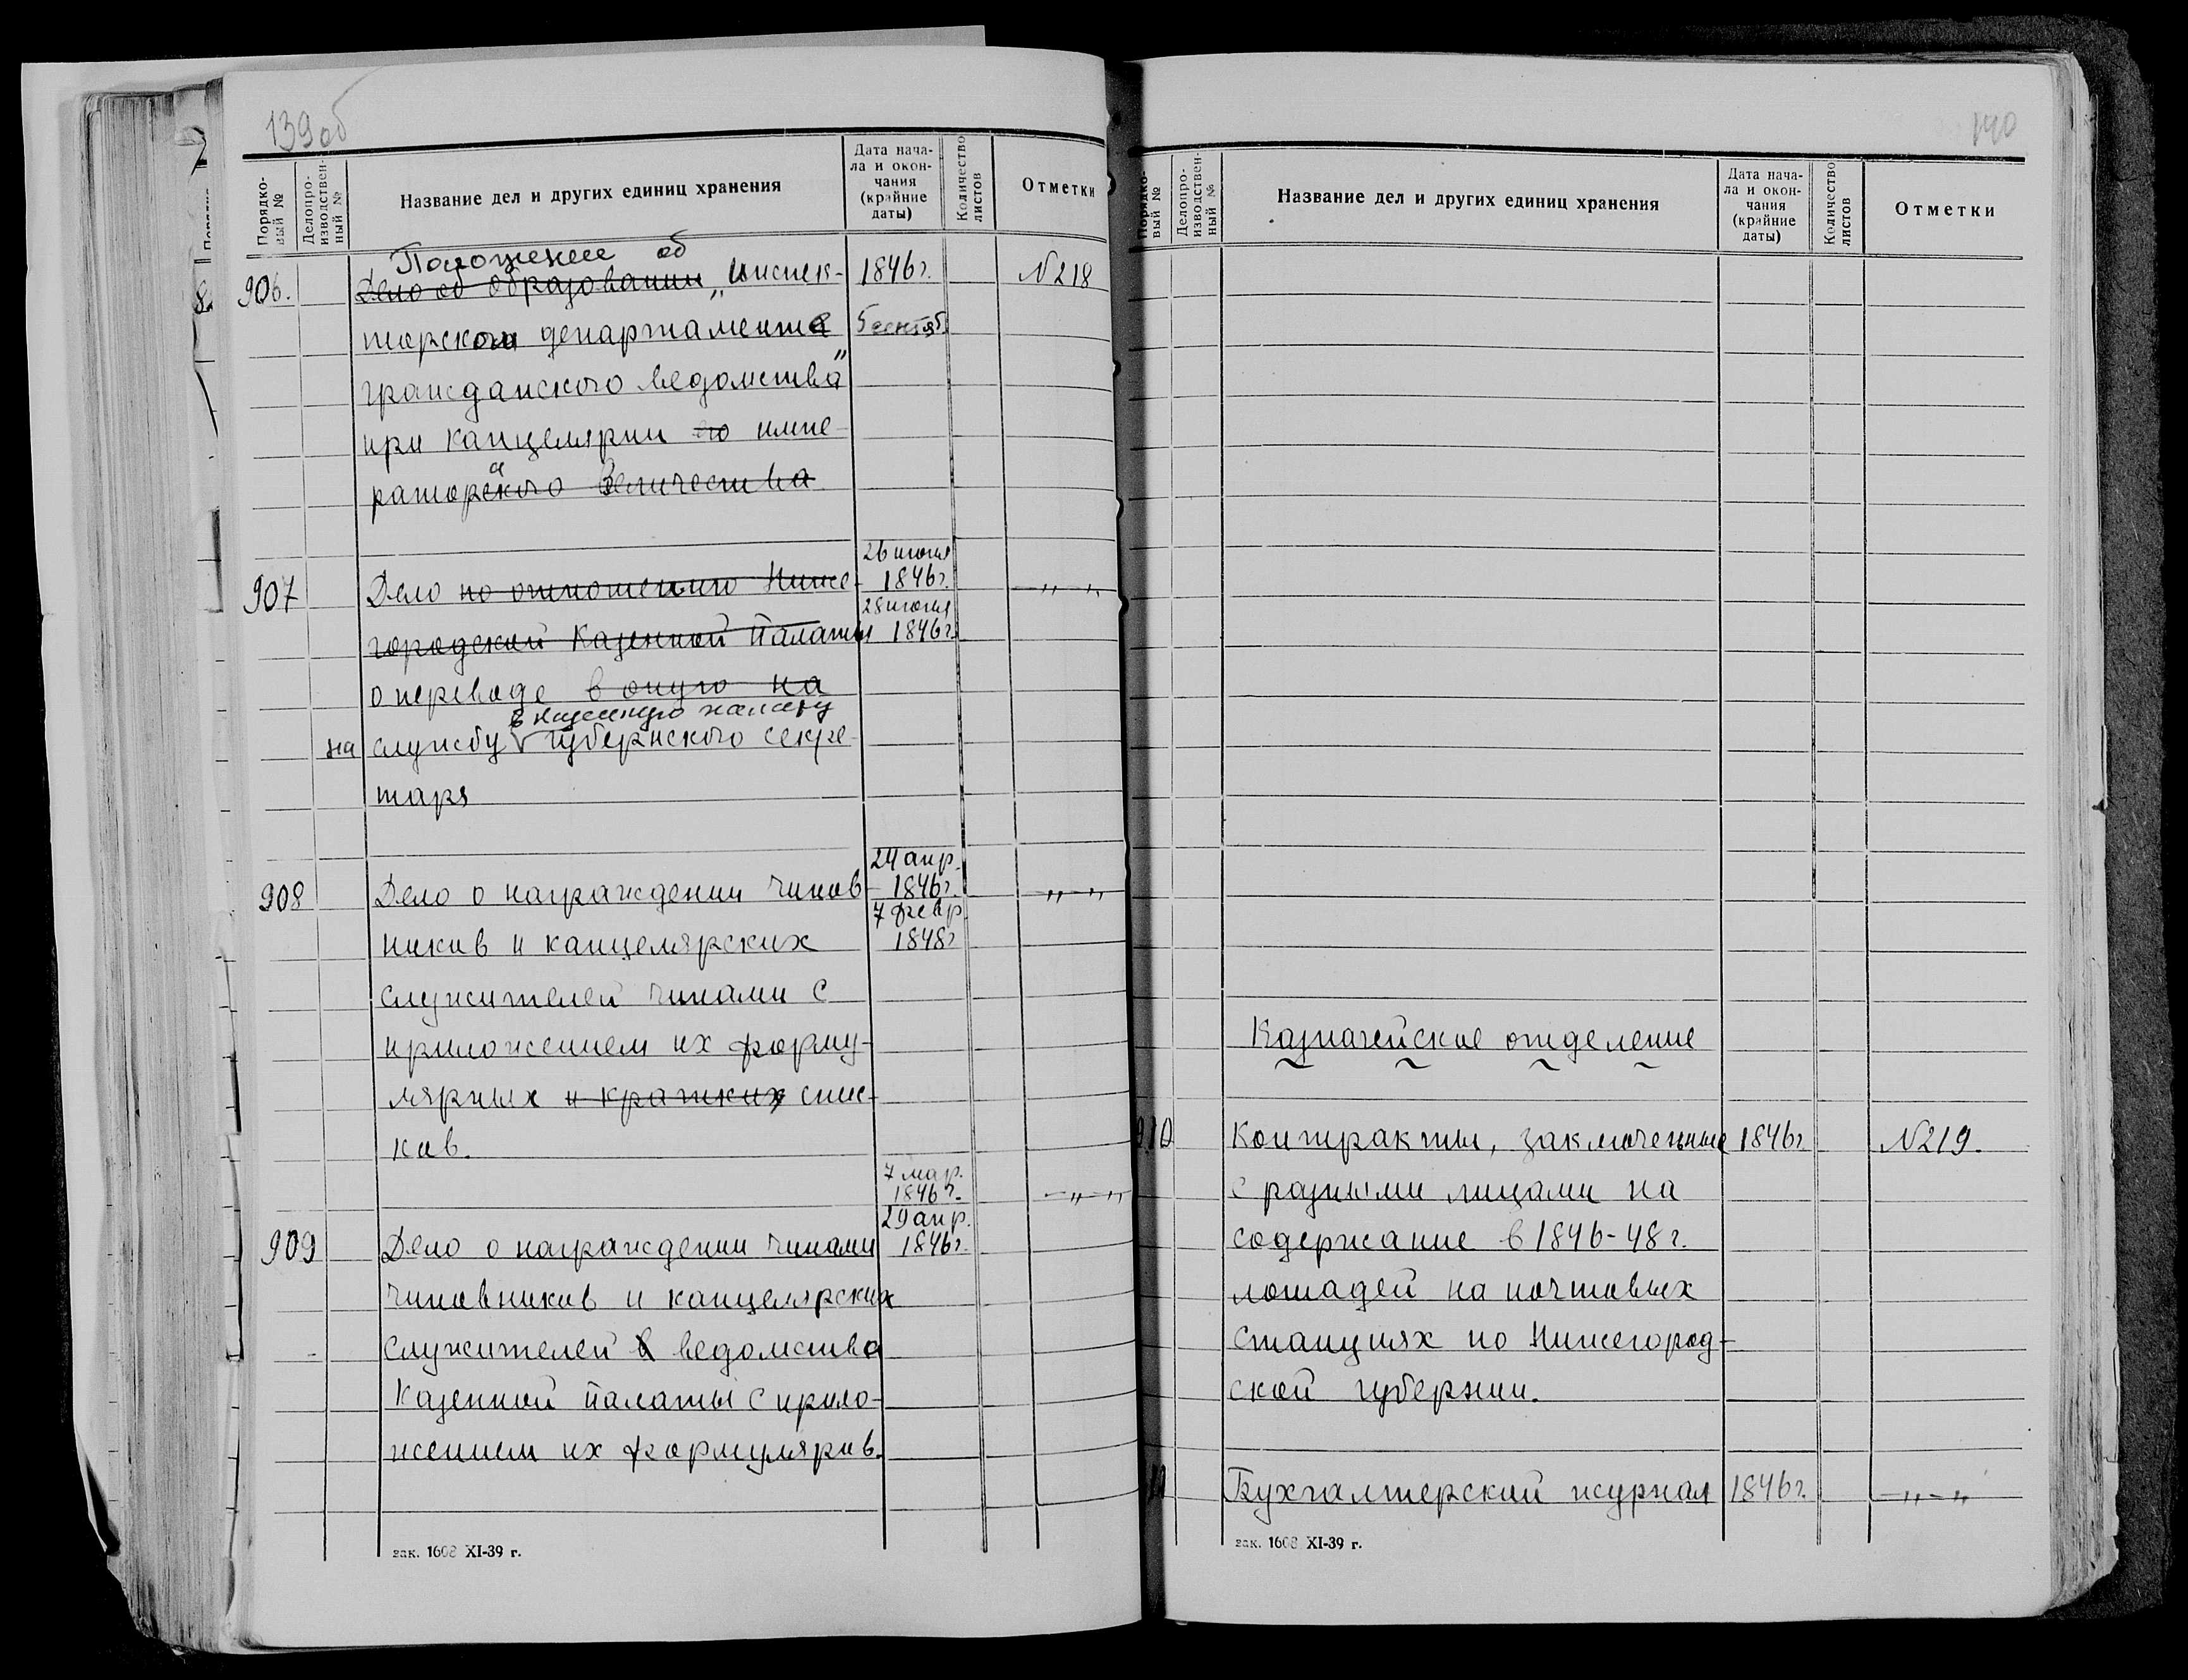 139 об
Порядковый №
Делопроизводственный №
Название дел и других единиц хранения
Дата начала и окончания (крайние даты)
Количество листов
Отметки
Положение об
906. Дело об образовании „инспек- 1846г. №218
торском департаменте 5 сентяб.
гражданского ведомства"
при канцелярии его импе-
раторского Величества
26 июня
907 Дело по отношению Ниже- 1846г. —„—„
28 июня
городской Казенной Палаты 1846г.
о переводе в оную на
в казенную палату
на службу губернского секре-
таря
24 апр.
908 Дело о награждении чинов- 1846г. —„—„
7 февр.
ников и канцелярских 1848г
служителей чинами с
приложением их форму-
лярных и кратких спис-
ков.
7 мар.
1846г. —„—„
29 апр.
909 Дело о награждении чинами 1846г.
чиновников и канцелярских
служителей в ведомства
Казенной палаты с прило-
жением их формуляров.
зак. 1608 XI-39 г.
140
Порядковый №
Делопроизводственный №
Название дел и других единиц хранения
Дата начала и окончания (крайние даты)
Количество листов
Отметки
Казначейское отделение
910 Контракты, заключенные 1846г. №219.
с разными лицами на
содержание в 1846-48г.
лошадей на почтовых
станциях по Нижегород-
ской губернии.
Бухгалтерский журнал 1846г. —„—„
зак. 1608 XI-39 г.